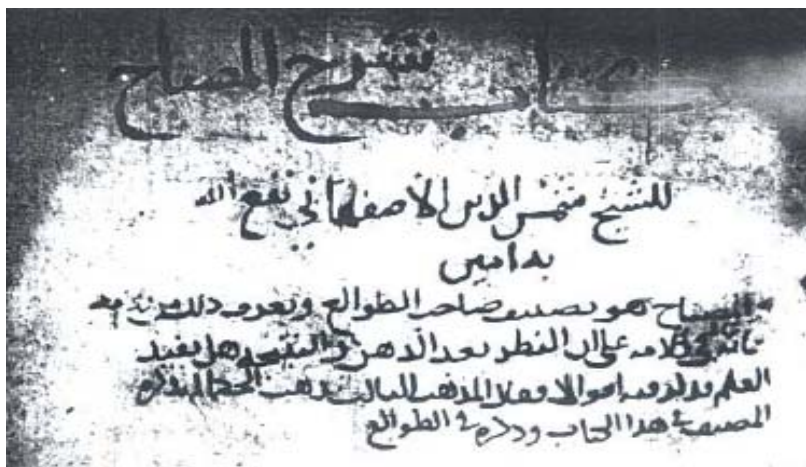 كتاب شرح المصباح
للشيخ شمس الدين الاصفهاني نفع الله
به امين
المصباح هو تصنيف صاحب الطوالع ويعرف ذلك من
كلامه على ان النظر يعد الذهن والنتيجة هل يفيد
العلم المذهب الثالث مذهب الحكما
المصنف في هذا الكتاب وذكره في الطوالع